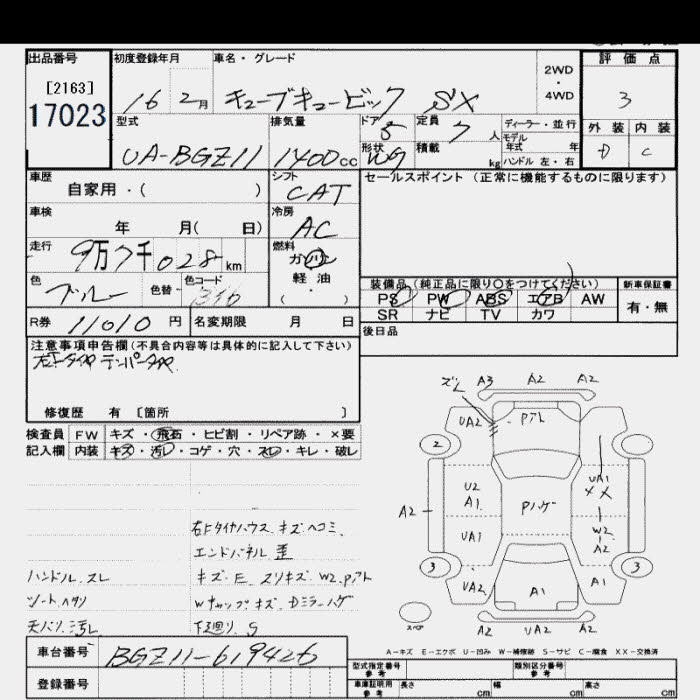 出品番号
[2163]
17023
初度登録年月
16 2月
車名・グレード
キューブキュービック SX
2WD
・
4WD
評価点
3
外装 内装
D C
型式
UA-BGZ11
排気量
1400cc
ドア 5
形状 WG
定員 7 人
積載 kg
ディーラー・並行
モデル
年式 年
ハンドル 左・右
車歴
自家用・( )
シフト
CAT
セールスポイント (正常に機能するものに限ります)
車検
年 月( 日)
冷房
AC
走行
9万7千028 km
燃料
ガソリン
軽油
( ・ )
色
ブルー
色替
色コード
R券 11010 円
名変期限 月 日
装備品(純正品に限り○をつけてください)
PS PW ABS エアB AW
SR ナビ TV カワ
新車保証書
有・無
後日品
注意事項申告欄(不具合内容等は具体的に記入して下さい)
テンパータイヤ
修復歴 有 [箇所 ]
検査員
記入欄
FW キズ・飛石・ヒビ割・リペア跡・×要
内装 キズ・汚レ・コゲ・穴・スレ・キレ・破レ
キズヘコミ
エンドパネル歪
ハンドル.スレ
キズ・E スリキズ W2.Pアト
シートヘタリ
Wキャップキズ.Dミラーハゲ
天バリ汚レ
下廻り.S
ズレ A3 A2 A2
UA2 Pアト
2
U2
A1
Pハゲ
UA1
××
A2
W2
A2
UA1
3 3
UA2 A1 A1
スペア
A2 UA2 A2
A-キズ E-エクボ U-凹み W-補修跡 S-サビ C-腐食 XX-交換済
車台番号 BGZ11-619426
登録番号
型式指定番号
参考
類別区分番号
参考
車庫証明用
参考
長さ cm 幅 cm 高さ cm